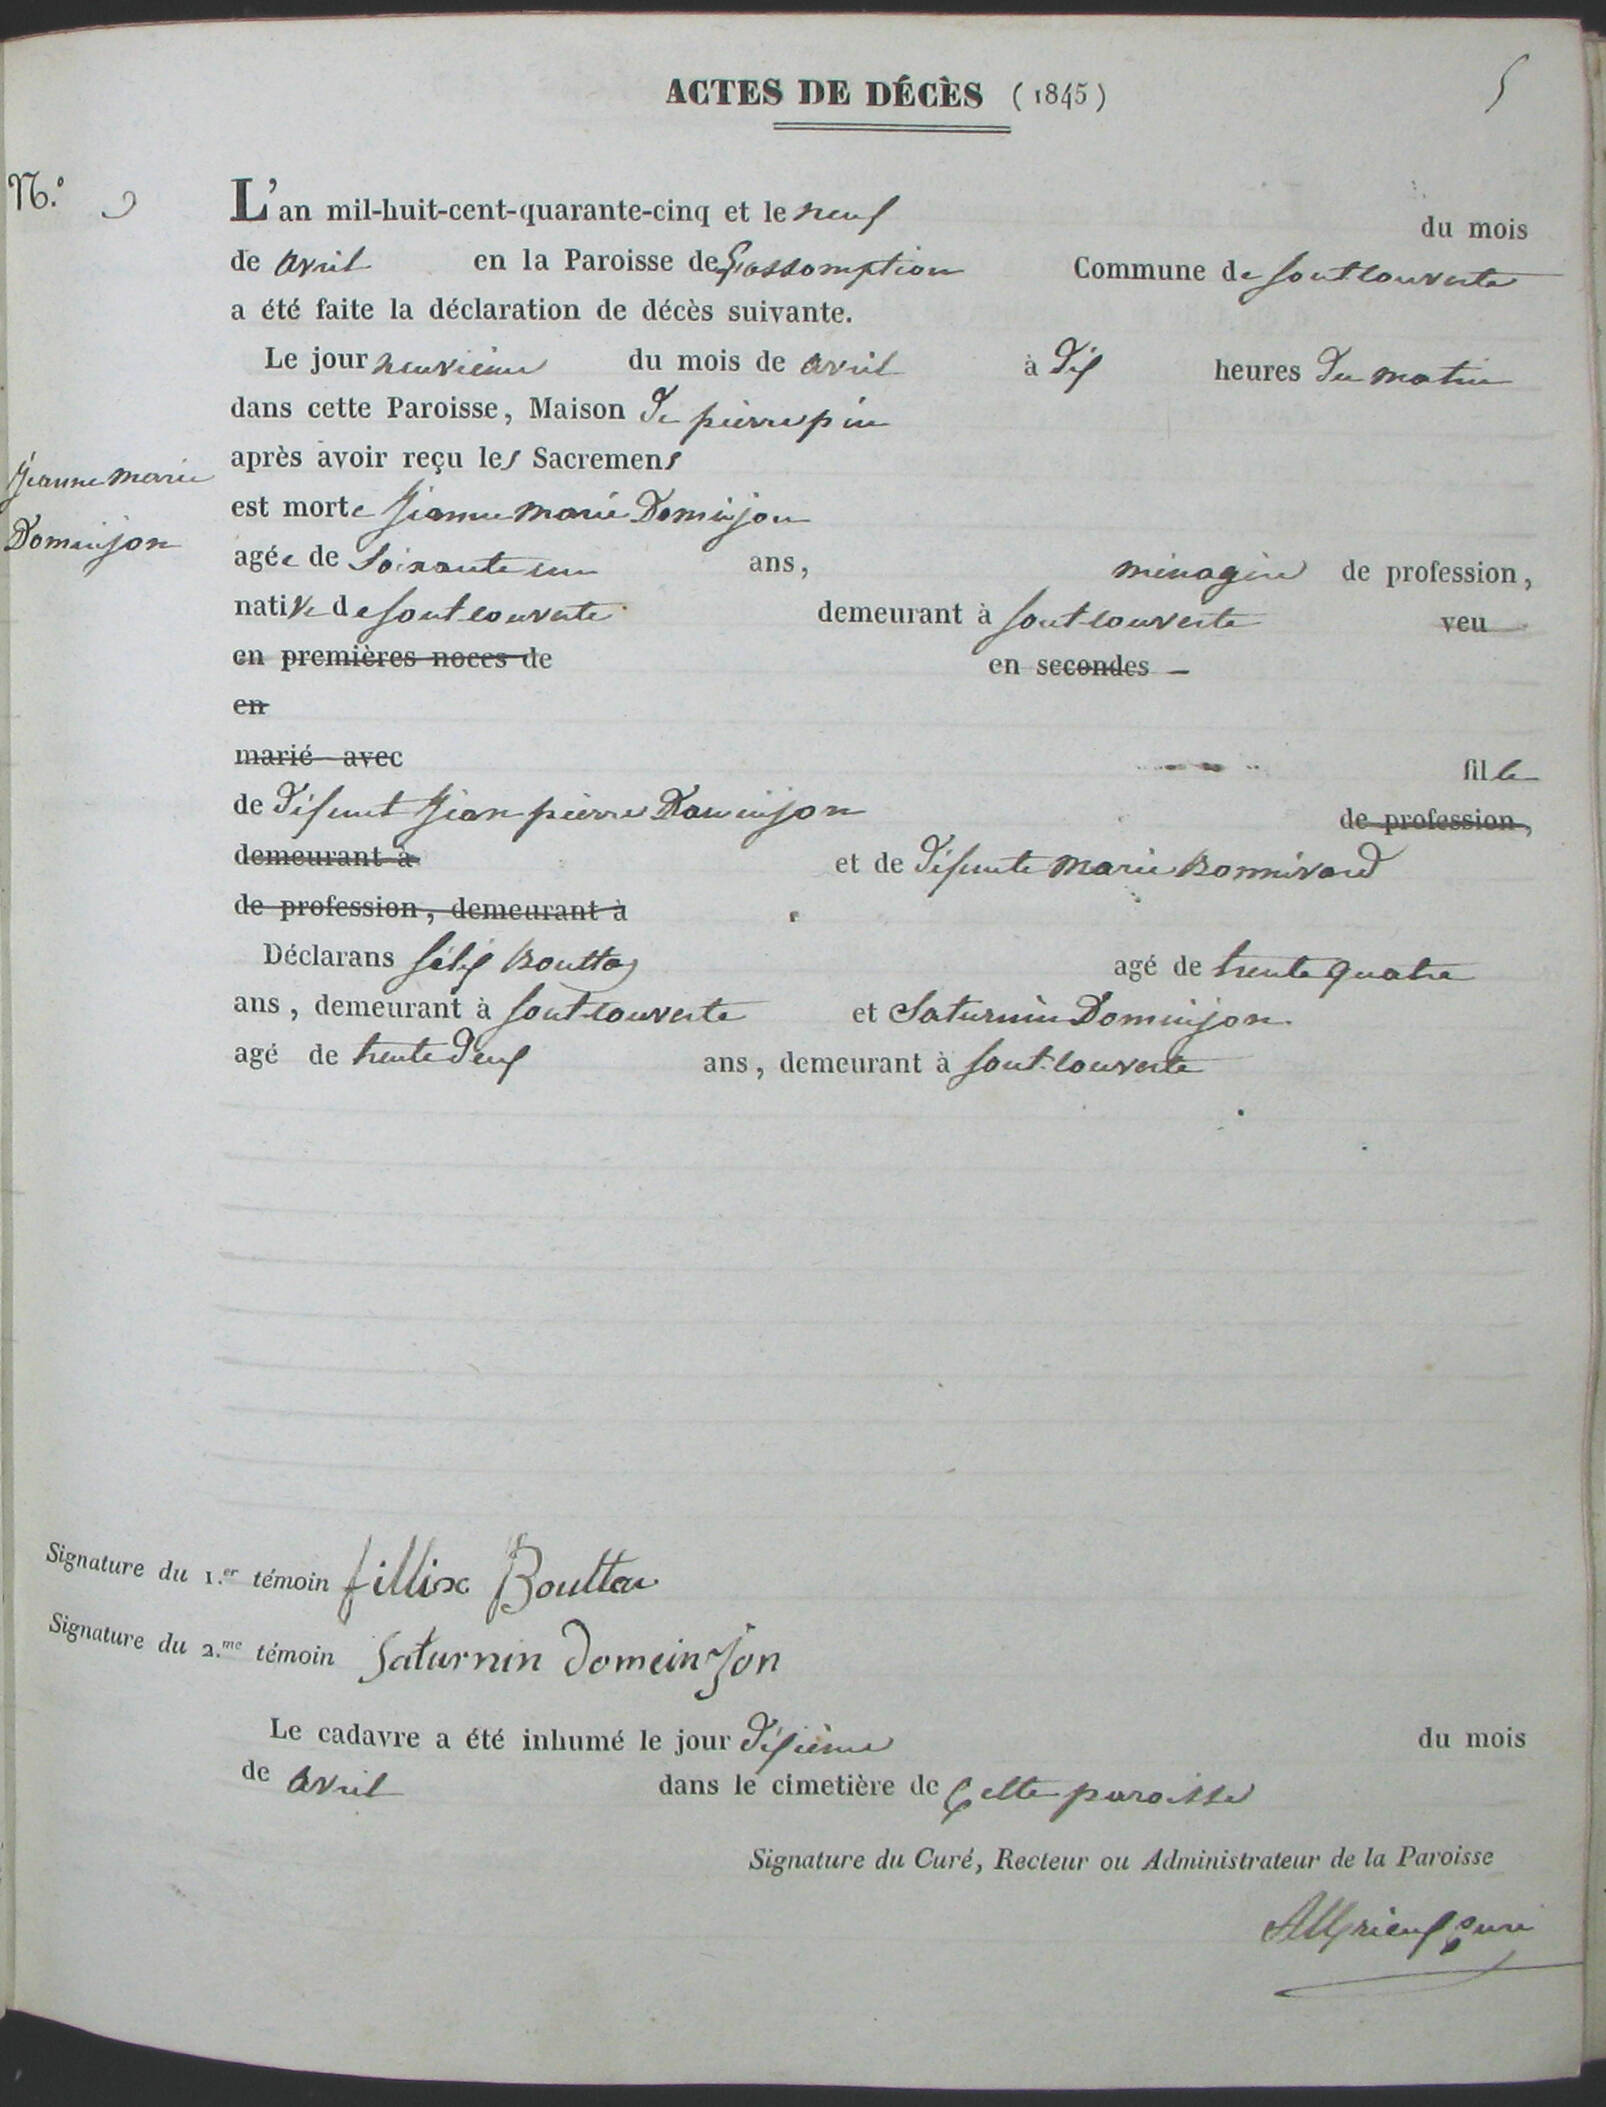 ACTES DE DÉCÈS (1845)
5
N.º 9
L'an mil-huit-cent-quarante-cinq et le neuf du mois
de avril en la Paroisse de L'assomption Commune de font-couverte
a été faite la déclaration de décès suivante.
Le jour neuvième du mois de avril à dix heures du matin
dans cette Paroisse, Maison de pierre pin
après avoir reçu les Sacremens
Jeanne marie
Dominjon
est morte Jeanne marie Dominjon
agée de soixante un ans, ménagère de profession,
native de font-couverte demeurant à font-couverte veu
en premières noces de en secondes
en
marié avec fille
de défunt Jean pierre Dominjon de profession,
demeurant à et de défunte marie Bonnivard
de profession, demeurant à
Déclarans félix Bouttaz agé de trente quatre
ans, demeurant à font-couverte et Saturnin Dominjon
agé de trente deux ans, demeurant à font-couverte
Signature du 1.er témoin fillix Bouttaz
Signature du 2.me témoin Saturnin domeinjon
Le cadavre a été inhumé le jour dixième du mois
de avril dans le cimetière de cette paroisse
Signature du Curé, Recteur ou Administrateur de la Paroisse
curé